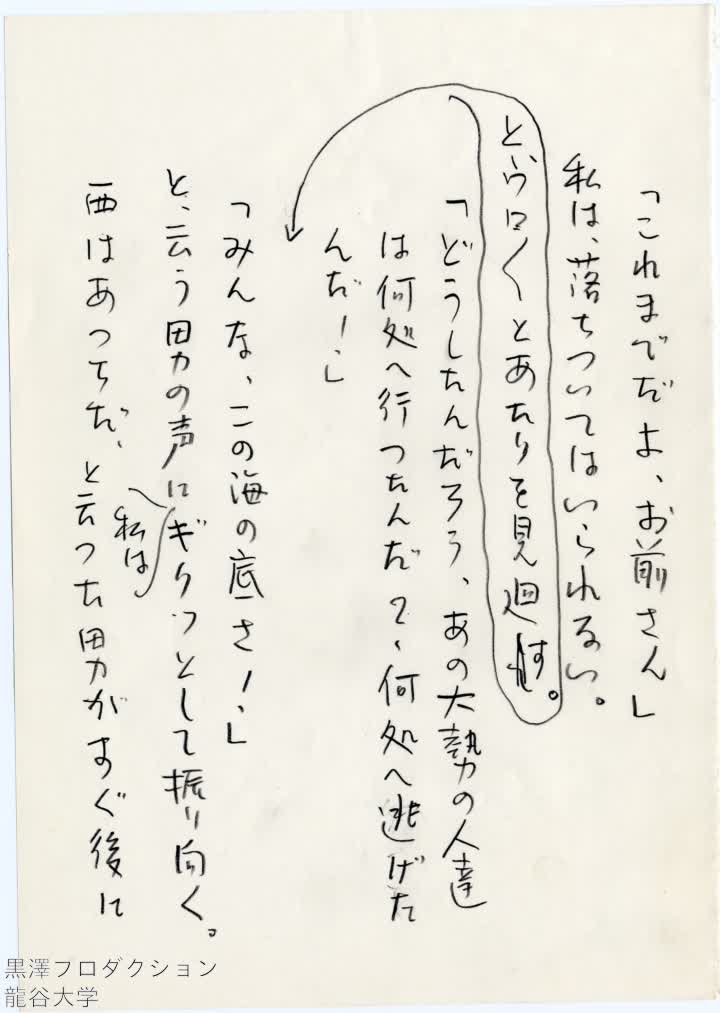 「これまでだよ、お前さん」
私は、落ちついてはいられない。
と、ウロ〱とあたりを見廻す。
「どうしたんだろう、あの大勢の人達
は何処へ行つたんだ？、何処へ逃げた
んだ！、」
「みんな、この海の底さ！、」
と、云う男の声にギクッとして振り向く。
私は
西はあつちだ、と云つた男がすぐ後に
黒澤プロダクション
龍谷大学